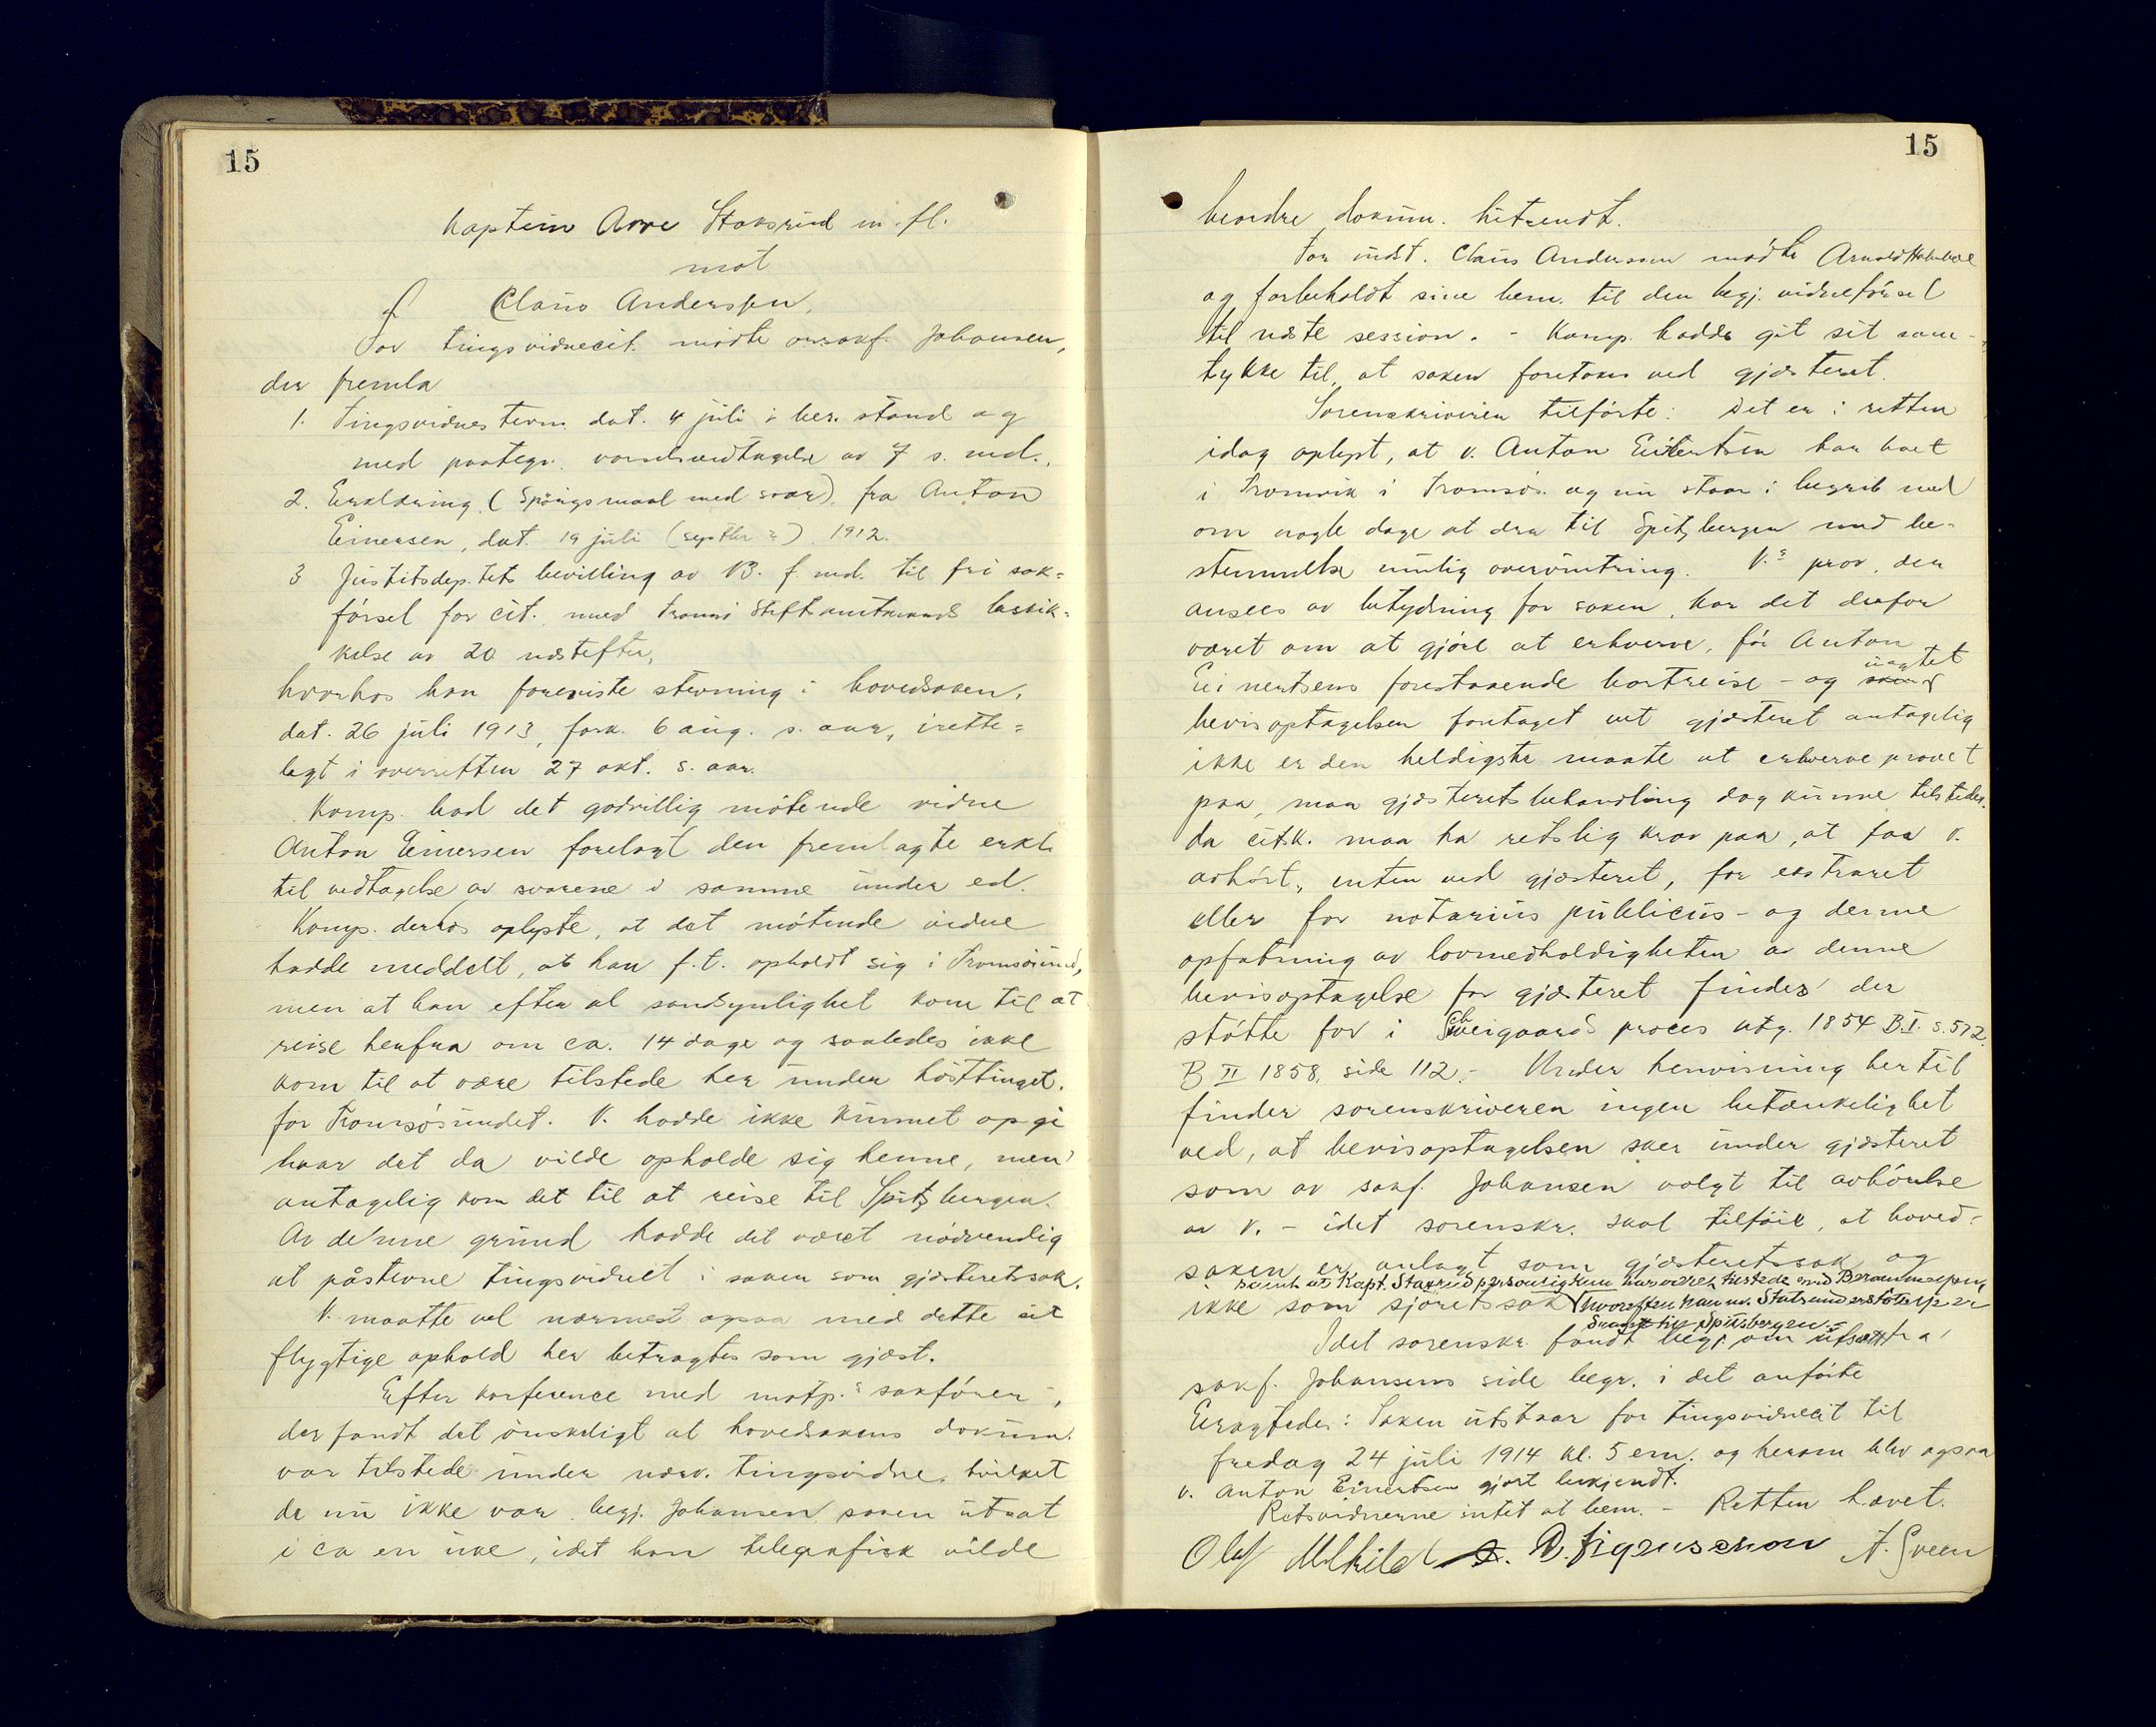 15
Kaptein Arve Staksrud m. fl.
mot
Claus Andersen.
For tingsvidnecit. mødte orsakf. Johansen,
der fremla
1. Tingsvidnestevn. dat. 4 juli i ber. stand og
med paategn. varselsvedtagelse av 7 s. md.,
2. Erklæring (Spørgsmaal med svar) fra Anton
Einersen, dat. 19 juli (septbr ?) 1912.
3 Justitsdep.tets bevilling av 13. f. md. til fri sak=
førsel for cit. med Tromsø Stiftamtmands beskik=
kelse av 20 næstefter,
hvorhos han foreviste stevning i hovedsaken,
dat. 26 juli 1913, fork. 6 aug. s. aar, irette=
lagt i overretten 27 okt. s. aar.
Komp. bad det godvillig møtende vidne
Anton Einersen forelagt den fremlagte erkl.
til vedtagelse av svarene i samme under ed.
Komp. derhos oplyste, at det møtende vidne
hadde meddelt, at han f. t. opholdt sig i Tromsøsund,
men at han efter al sandsynlighet kom til at
reise herfra om ca. 14 dage og saaledes ikke
kom til at være tilstede her under høsttinget.
for Tromsøsundet. V. hadde ikke kunnet opgi
hvor det da vilde opholde sig henne, men
antagelig kom det til at reise til Spitzbergen.
Av denne grund hadde det været nødvendig
at påstevne tingsvidnet i saken som gjæsteretssak.
V. maatte vel nærmest ogsaa med dette sit
flygtige ophold her betragtes som gjæst.
Efter konference med motp.s sakfører,
der fandt det ønskeligt at hovedsakens dokum.
var tilstede under nærv. tingsvidne, hvilket
de nu ikke var, begj. Johansen saken utsat
i ca en uke, idet han telegrafisk vilde
15
beordre dokum. hitsendt.
For indst. Claus Andersen mødte Arnold Holmboe
og forbeholdt sine bem. til den begj. vidneførsel
til næste session. - Komp. hadde git sit sam-
tykke til, at saken foretoges ved gjæsteret.
Sorenskriveren tilførte: Det er i retten
idag oplyst, at v. Anton Einertsen har boet
i Tromvik i Tromsøs. og nu staar i begreb med
om nogle dage at dra til Spitzbergen med be-
stemmelse mulig overvintring. V.s prov, der
ansees av betydning for saken, har det derfor
været om at gjøre at erhverve, før Anton
Einertsens forestaaende bortreise - og uagtet
bevisoptagelsen foretaget ved gjæsteret antagelig
ikke er den heldigste maate at erhverve provet
paa, maa gjæsteretsbehandling dog kunne tilstedes.
da citsk. maa ha retslig krav paa, at faa v.
avhørt, enten ved gjæsteret, for ekstraret
eller for notarius publicus - og denne
opfatning av lovmedholdigheten av denne
bevisoptagelse for gjæsteret findes der
støtte for i Schweigaards proces utg. 1854 B. I. s. 512.
B II 1858, side 112. - Under henvisning hertil
finder sorenskriveren ingen betænkelighet
ved, at bevisoptagelsen sker under gjæsteret
som av sakf. Johansen valgt til avhørelse
av v. - idet sorenskr. skal tilføie, at hoved-
saken er anlagt som gjæsteretssak og
samt at Kapt. Staksrud personlig kun har været tilstede ved Berammelsen,
ikke som sjøretssak hvorefter han m. Statsunderstøttelse er
sendt til Spitsbergen. -
Idet sorenskr. fandt begj. om utsætt. fra
sakf. Johansens side begr. i det anførte
Eragtedes: Saken utstaar for tingsvidnecit til
fredag 24 juli 1914 kl. 5 em. og herom blev ogsaa
v. Anton Einertsen gjort bekjendt.
Retsvidnerne intet at bem. - Retten hævet.
Olaf A. Sveen